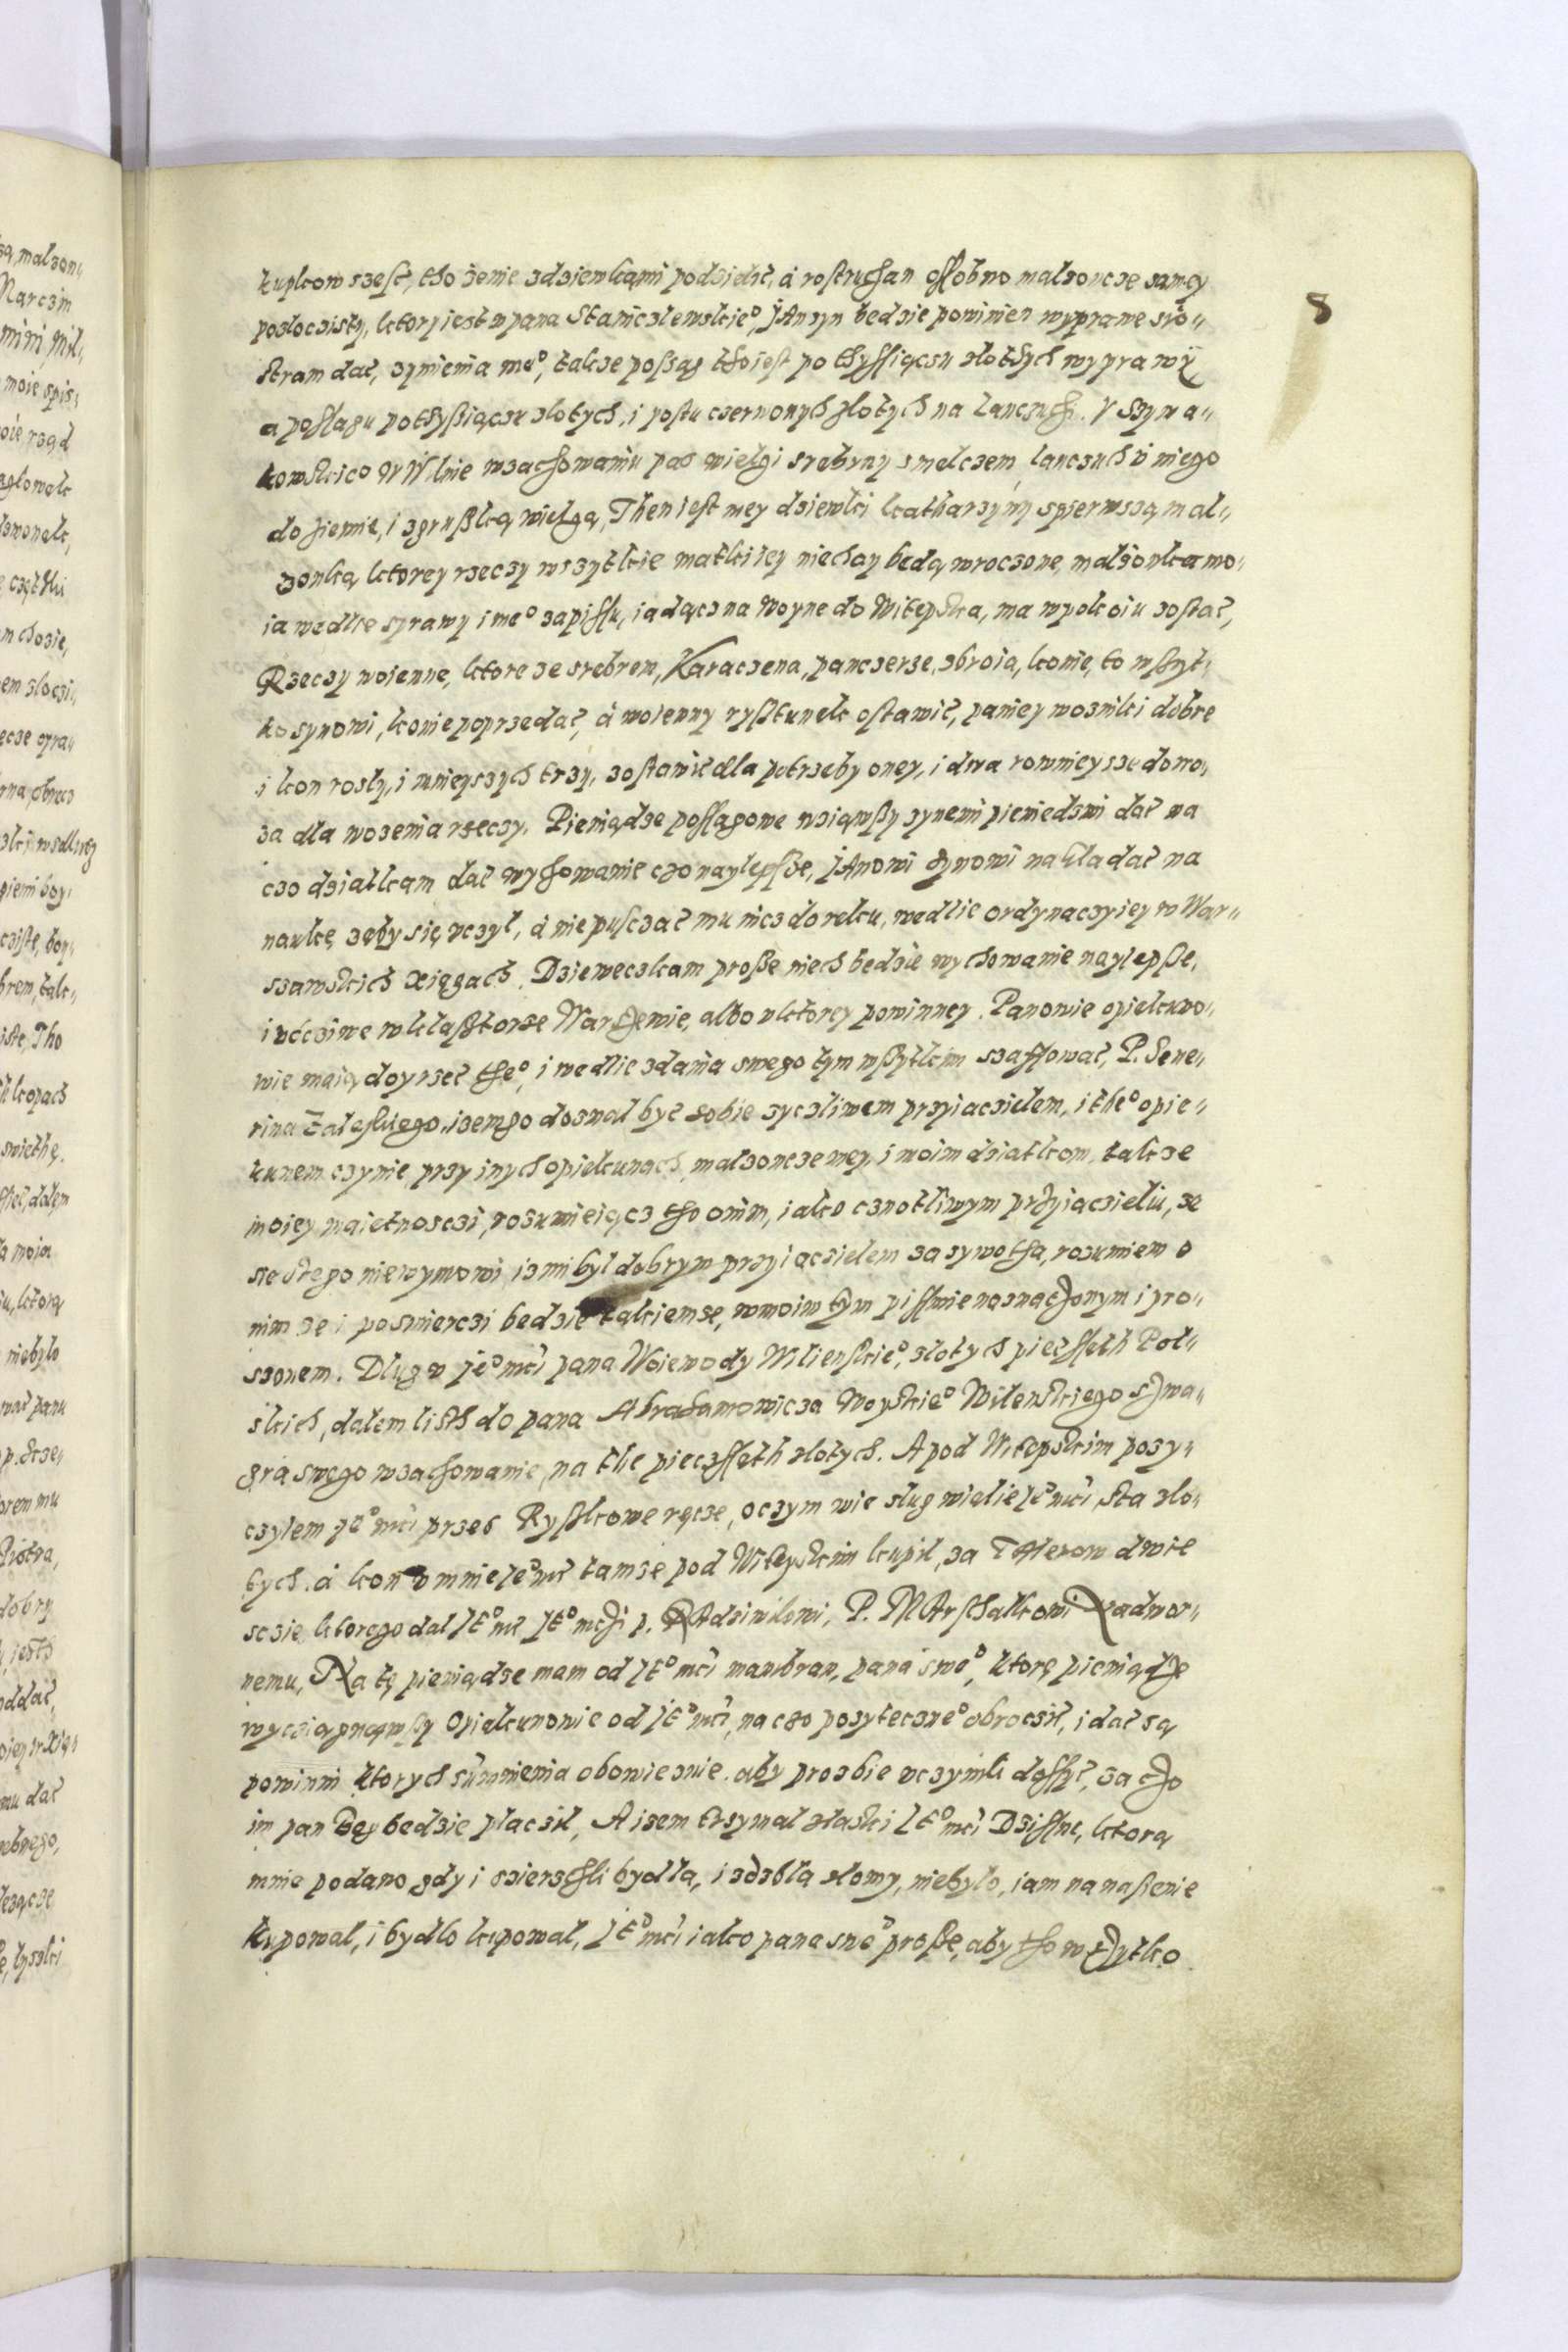 8
kupkow szesć, tho żenie zdziewkami podzielić, á rostruchan osłobno małzoncze samey
pozłoczisty, ktory iest w pana Staniczlewskie°, JAn syn bedzie powinien wyprawe sio„
stram dać, zymienia me°, takze possag tho iest po thyssiączu złothych wyprawy
a posłagu po tysiączu złotych, i postu czerwonych złotych na Lanczuch. V Szyra„
kowskie° W Wilnie w zachowaniu pas wielgi srebrny smelczem, lanczuch v niego
do ziemie, i zgruszką wielgą, Then iest mey dziewki katharzyny spierwszą mal„
zonką, ktorey rzeczy wszytkie matki iey niechay bedą wroczone, małżonka mo„
ia wedlie sprawy i me° zapissu, iadącz na Woyne do Witepska, ma wpokoiu zostać,
Rzeczy woienne, ktore ze srebrem, Karaczena, panczerze, zbroia, konie, to wszyt„
ko synowi, konie poprzedać, á woienny rysztunek ostawić, paniey wozniki dobre
i kon rosly, i mnieyszych trzy, zostawić dla potrzeby oney, i dwa rowniey sze dowo„
za dla wozenia rzeczy. Pieniądze possagowe wziąwszy zynemi pieniedzmi dać na
czo dziatkam dać wychowanie czo naylepsze, JAnowi synowi nakladać na
naukę zeby się vczyl, á nie puszczać mu nicz do reku, wedlie ordynaczyiey w War„
szawskich xięgach. Dzieweczkam prosze niech bedzie wychowanie naylepsze,
i vćcziwe w klasztorze Warszewie, albo v ktorey powinney. Panowie opiekuno„
wie maią doyrzeć the°, i wedlie zdania swego tym wszytkim szaffować, P. Seue„
rina Zaleskiego, izemgo doznal być sobie zyczliwem przyiaczielem, i the° opie„
kunem czynie, przy inych opiekunach, malzoncze mey, i moim dziatkom, takze
moiey maietnosczi, rozumieiącz tho onim, iako cznotliwym przyiaczieliu, ze
sie stego niewymowi, iz mi byl dobrym przyiaczielem za zywotha, rozumiem o
nim ze i posmierczi bedzie takiemze, w moim tym pissmie naznaczonym i pro„
szonem. Dlug v Je° mći pana Woiewody Wilienskie°, złotych piećsseth Pol„
skich, dałem listh do pana Abrahamowicza Woyskie° Wilenskiego szwa„
gra swego w zachowanie, na the pieczsseth złotych. A pod Witepskim pozy„
czylem Je° mći przes Ryszkowe ręcze, o czym wie slug wielie Je° mći sta zlo„
tych. á kon v mnie Je° mć tamże pod Witepskim kupił, za Talerow dwie
scie, ktorego dal JE° mć JE° mczi p. RAdziwilowi, P. MArschalkowi Nadwor„
nemu, Na tę pieniądze mam od JE° mći manbran, pana swe°, ktorę pieniądze
wycziągnąwszy Opiekunowie od JE° mći, na czo pozyteczne° obroczić, i dać są
powinni ktorych sumnienia obowieznie. aby prozbie vczynili dossyć, za czo
im pan Bog bedzie placził, A izem trzymal złaski JE° mći Dzissne, ktorą
mnie podano gdy i szierschli bydła, i zdzbla słomy, niebylo, iam na nasienie
kupowal, i bydlo kupowal, JE° mći iako pana swe° prosze, aby tho wszytko